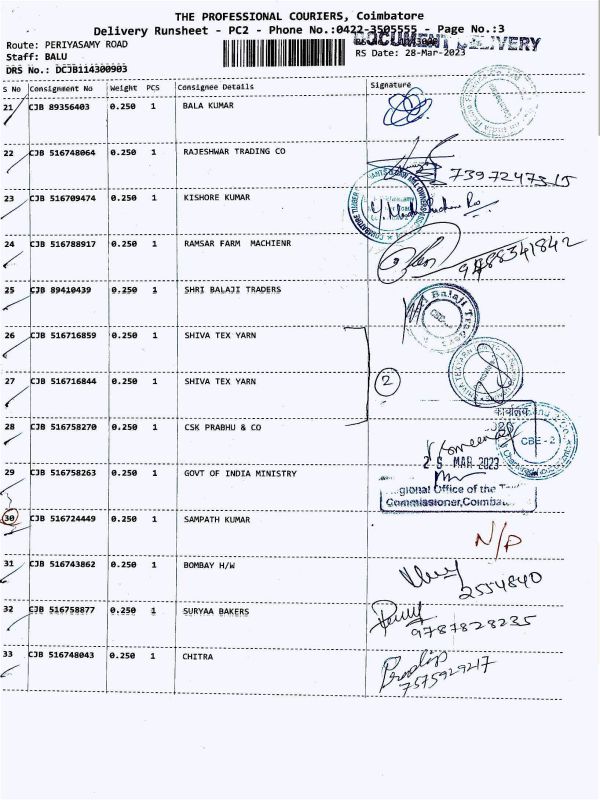 THE PROFESSIONAL COURIERS, Coimbatore
Delivery Runsheet - PC2 - Phone No.:0422-3505555 - Page No.:3
Route: PERIYASAMY ROAD
DOCUMENT DELIVERY
Staff: BALU
RS Date: 28-Mar-2023
DRS No.: DCJB114300903
S No Consignment No Weight PCS Consignee Details Signature
21 CJB 89356403 0.250 1 BALA KUMAR
22 CJB 516748064 0.250 1 RAJESHWAR TRADING CO
7397247315
23 CJB 516709474 0.250 1 KISHORE KUMAR
24 CJB 516788917 0.250 1 RAMSAR FARM MACHIENR
9488341842
25 CJB 89410439 0.250 1 SHRI BALAJI TRADERS
Balaji Traders
26 CJB 516716859 0.250 1 SHIVA TEX YARN
27 CJB 516716844 0.250 1 SHIVA TEX YARN
2
कार्यालय
28 CJB 516758270 0.250 1 CSK PRABHU & CO
CBE - 2
29 CJB 516758263 0.250 1 GOVT OF INDIA MINISTRY
MAR 2023
Office of the
Commissioner,
30 CJB 516724449 0.250 1 SAMPATH KUMAR
N/P
31 CJB 516743862 0.250 1 BOMBAY H/W
2554840
32 CJB 516758877 0.250 1 SURYAA BAKERS
9787828235
33 CJB 516748043 0.250 1 CHITRA
Pradip
7575929217